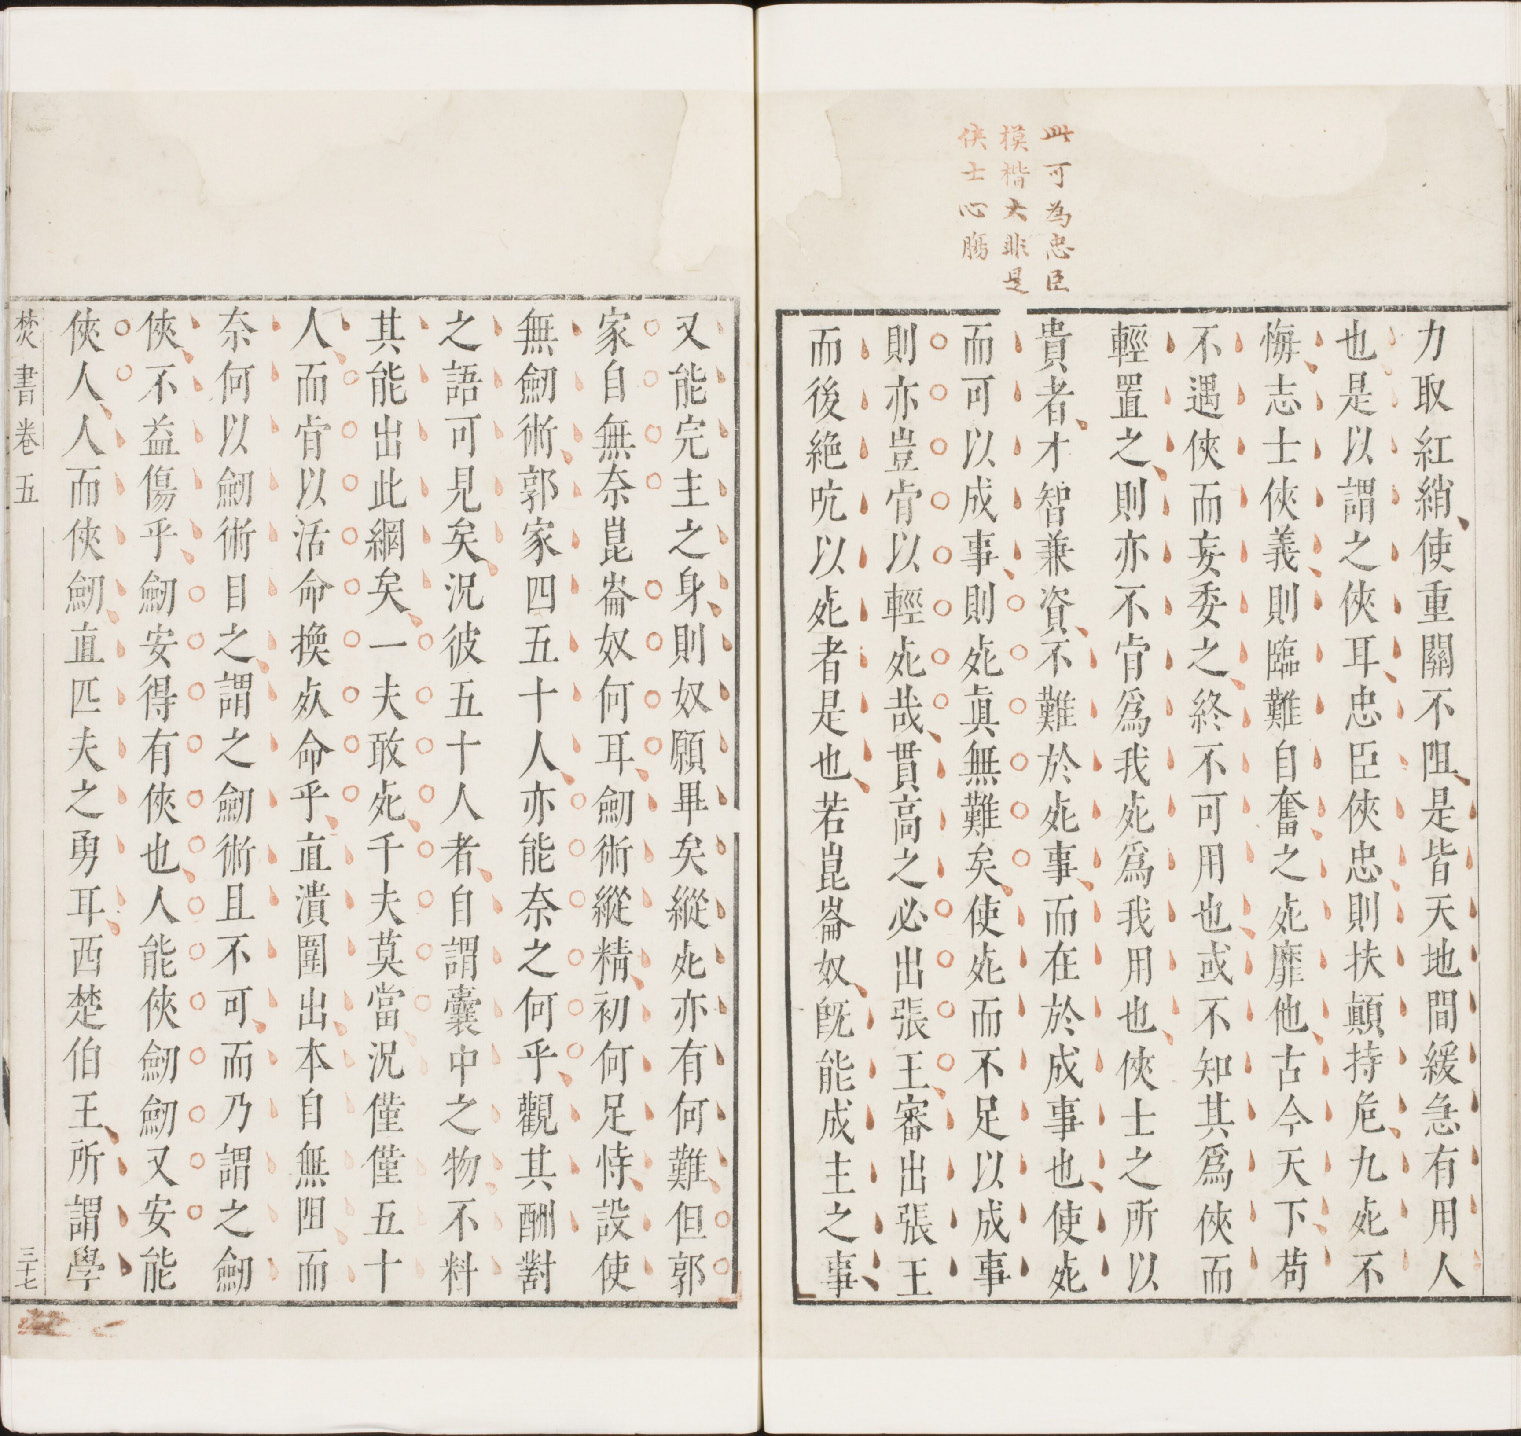 此可為忠臣
模楷大非是
俠士心腸
力取紅綃使重關不阻是皆天地間緩急有用人
也是以謂之俠耳忠臣俠忠則扶顛持危九死不
悔志士俠義則臨難自奮之死靡他古今天下苟
不遇俠而妄委之終不可用也或不知其爲俠而
輕置之則亦不肯爲我死爲我用也俠士之所以
貴者才智兼資不難於死事而在於成事也使死
而可以成事則死眞無難矣使死而不足以成事
則亦豈肯以輕死哉貫高之必出張王審出張王
而後絶吭以死者是也若崑崙奴旣能成主之事
又能完主之身則奴願畢矣縱死亦有何難但郭
家自無奈崑崙奴何耳劒術縱精初何足恃設使
無劒術郭家四五十人亦能奈之何乎觀其酬對
之語可見矣況彼五十人者自謂囊中之物不料
其能出此網矣一夫敢死千夫莫當況僅僅五十
人而肯以活命換死命乎直潰圍出本自無阻而
奈何以劒術目之謂之劒術且不可而乃謂之劒
俠不益傷乎劒安得有俠也人能俠劒劒又安能
俠人人而俠劒直匹夫之勇耳西楚伯王所謂學
焚書卷五
三十七